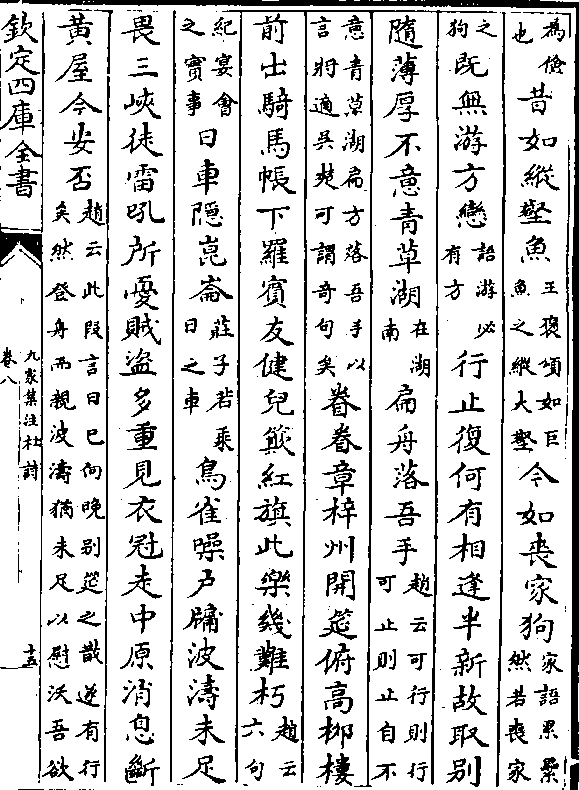 為儉也昔如縱壑魚王褒頌如巨魚之縱大壑今如喪家狗家語累累然若喪家
之狗既無游方戀語游必有方行止復何有相逢半新故取別
隨薄厚不意青草湖在湖南扁舟落吾手趙云可行則行可止則止自不
意青草湖扁方落吾手以言將適吳楚可謂奇句矣眷眷章梓州開筵俯高柳樓
前出騎馬帳下羅賓友健兒簸紅旗此樂幾難朽趙云六句
紀宴會之實事日車隱崑崙莊子若乘日之車鳥雀噪戶牖波濤未足
畏三峽徒雷吼所憂賊盜多重見衣冠走中原消息斷
黃屋今安否趙云此段言日已向晚別筵之散遂有行矣然登舟而親波濤猶未足以慰沃吾欲
欽定四庫全書
九家集注杜詩
卷八
十五